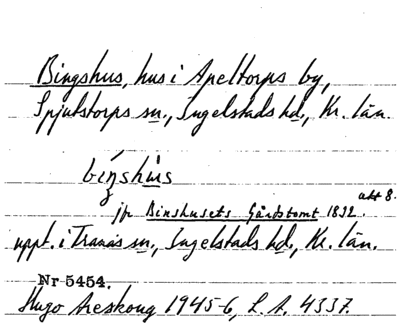 Bingshus, hus i Apeltorps by,
Spjutstorps sn., Ingelstads hd., Kr. län.
bíŋshùs
akt 8.
jfr Binshusets Gårdstomt 1832.
uppt. i Tranås sn., Ingelstads hd., Kr. län.
Nr 5454.
Hugo Areskoug 1945-6, L.A. 4337.